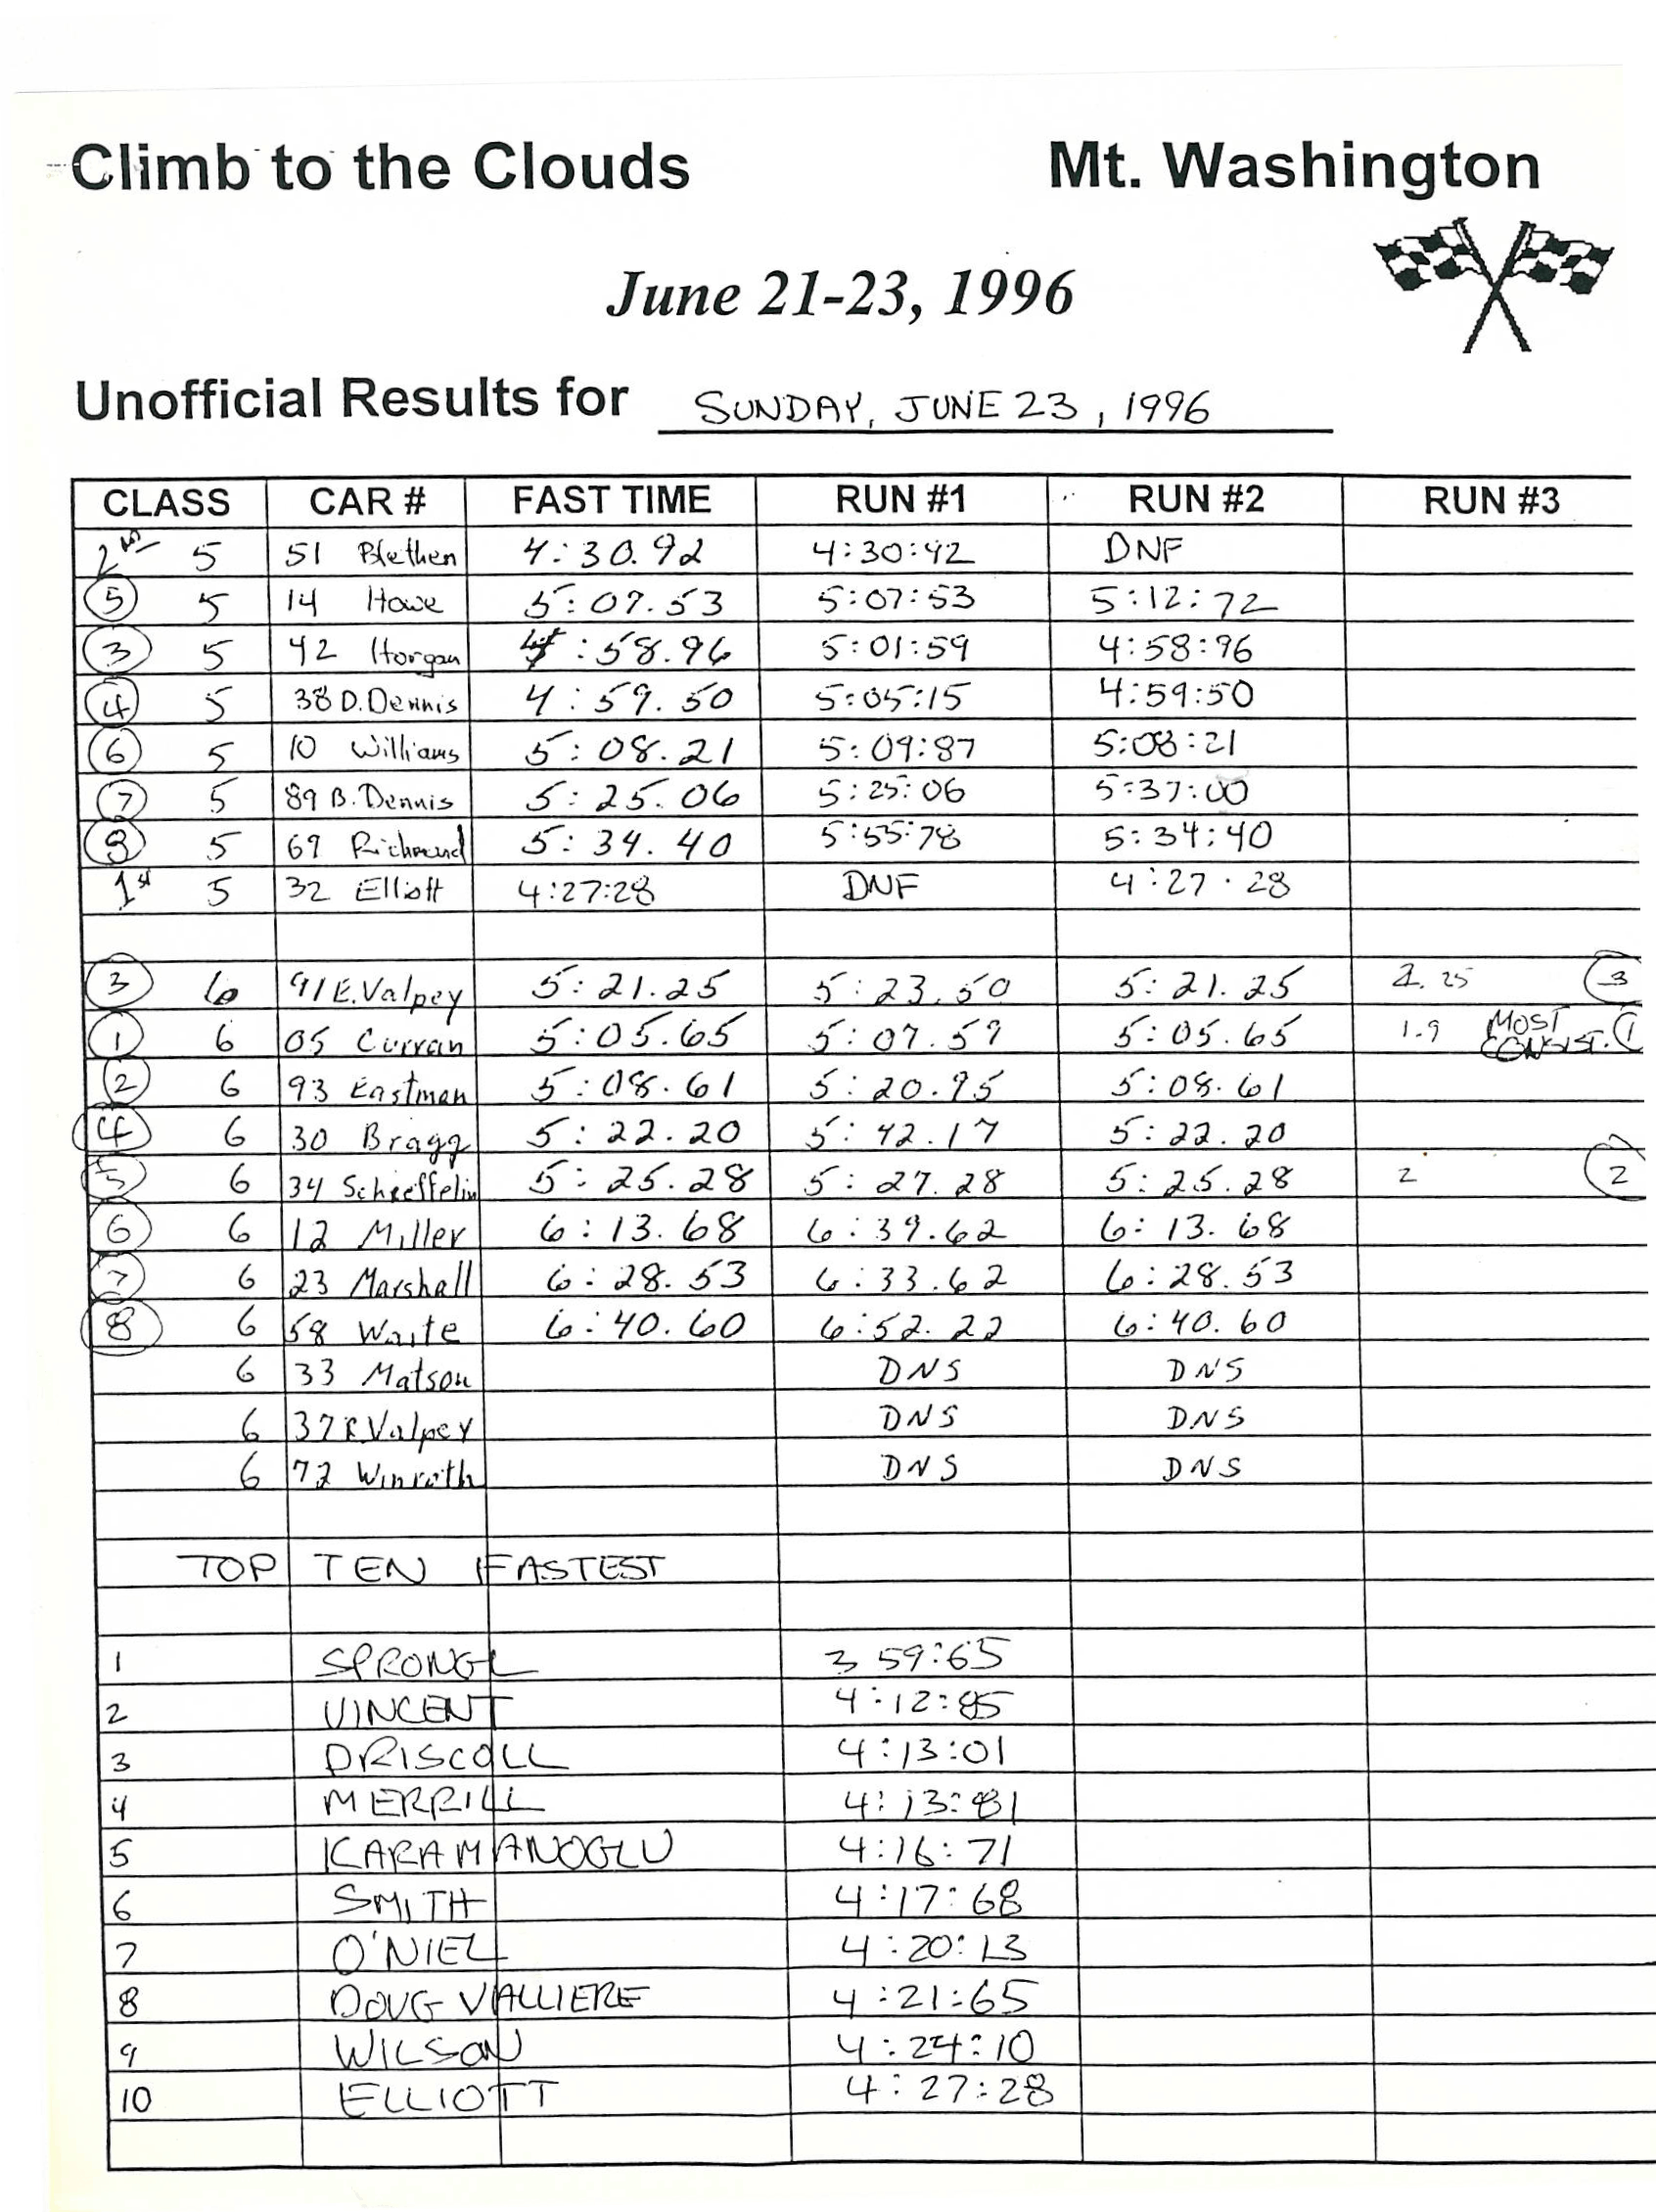 Climb to the Clouds Mt. Washington
June 21-23, 1996
Unofficial Results for SUNDAY, JUNE 23, 1996
CLASS CAR # FAST TIME RUN #1 RUN #2 RUN #3
2nd 5 51 Blethen 4:30.92 4:30:42 DNF
5 5 14 Howe 5:07.53 5:07:53 5:12:72
3 5 42 Horgan 4:58.96 5:01:59 4:58:96
4 5 38 D. Dennis 4:59.50 5:05:15 4:59:50
6 5 10 Williams 5:08.21 5:09:87 5:08:21
7 5 89 B. Dennis 5:25.06 5:25:06 5:37:00
8 5 69 Richmond 5:34.40 5:55:78 5:34:40
1st 5 32 Elliott 4:27:28 DNF 4:27.28
3 6 91 E. Valpey 5:21.25 5:23.50 5:21.25 2.25 3
1 6 05 Curran 5:05.65 5:07.57 5:05.65 1.9 MOST CONSIST. 1
2 6 93 Eastman 5:08.61 5:20.95 5:08.61
4 6 30 Bragg 5:22.20 5:42.17 5:22.20
5 6 34 Scheeffelin 5:25.28 5:27.28 5:25.28 2 2
6 6 12 Miller 6:13.68 6:39.62 6:13.68
7 6 23 Marshall 6:28.53 6:33.62 6:28.53
8 6 58 Waite 6:40.60 6:52.22 6:40.60
6 33 Matson DNS DNS
6 37 R. Valpey DNS DNS
6 72 Winroth DNS DNS
TOP TEN FASTEST
1 SPRONGL 3 59:65
2 VINCENT 4:12:85
3 DRISCOLL 4:13:01
4 MERRILL 4:13:81
5 KARAMANOGLU 4:16:71
6 SMITH 4:17:68
7 O'NIEL 4:20:13
8 DOUG VALLIERE 4:21:65
9 WILSON 4:24:10
10 ELLIOTT 4:27:28